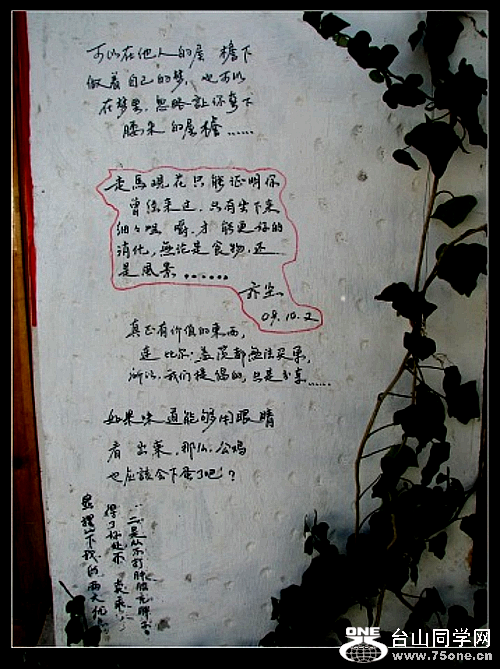 可以在他人的屋檐下
做着自己的梦，也可以
在梦里，忽略让你弯下
腰来的屋檐……
走馬观花只能证明你
曾经来过，只有坐下来
细细咀嚼，才能更好的
消化，無论是食物，还
是風景……
09.10.2
真正有价值的東西，
连比尔·盖茨都無法买柬，
所以，我们提倡的，只是分享……
如果味道能够用眼睛
看出来，那么，公鸡
也应該会下蛋了吧？
台山同学网
www.75one.cn
ONE